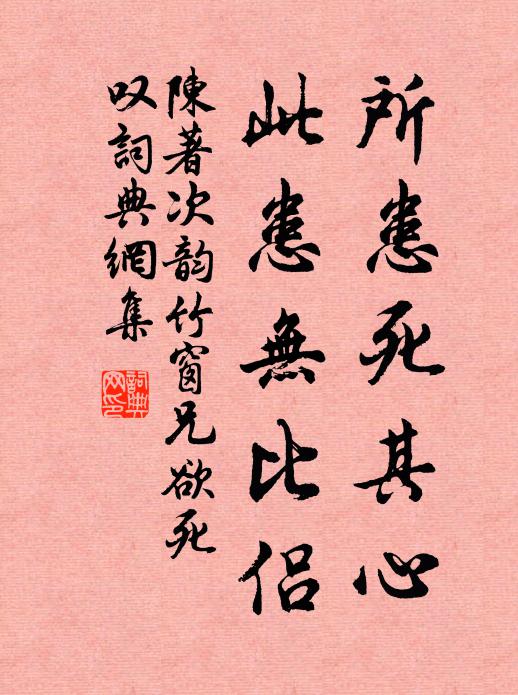 所患死其心
此患無比侣
陳著次韵竹窗兄欲死
叹詞典網集
詞典网印